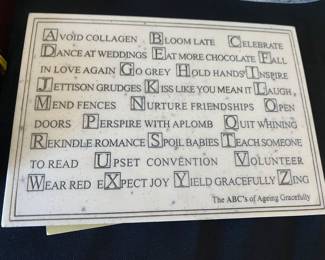 AVOID COLLAGEN BLOOM LATE CELEBRATE
DANCE AT WEDDINGS EAT MORE CHOCOLATE FALL
IN LOVE AGAIN GO GREY HOLD HANDS INSPIRE
JETTISON GRUDGES KISS LIKE YOU MEAN IT LAUGH
MEND FENCES NURTURE FRIENDSHIPS OPEN
DOORS PERSPIRE WITH APLOMB QUIT WHINING
REKINDLE ROMANCE SPOIL BABIES TEACH SOMEONE
TO READ UPSET CONVENTION VOLUNTEER
WEAR RED EXPECT JOY YIELD GRACEFULLY ZING
The ABC's of Ageing Gracefully